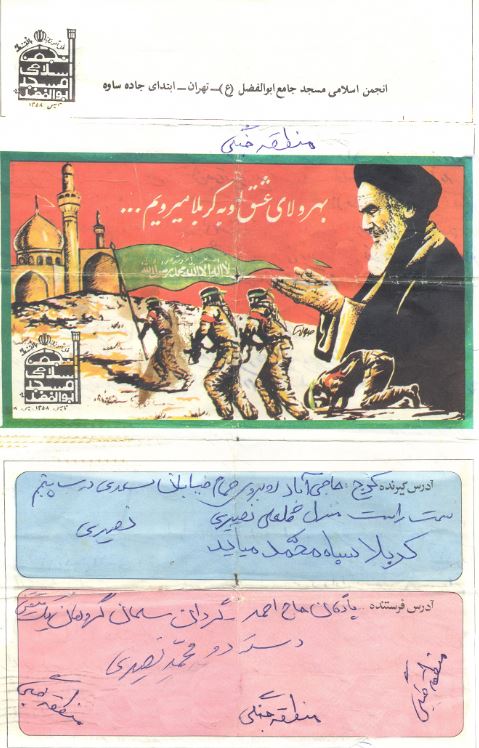 انجمن
اسلامی
مسجد
ابوالفضل
تاسیس ۱۳۵۸
انجمن اسلامی مسجد جامع ابوالفضل (ع) – تهران – ابتدای جاده ساوه
منطقه جنگی
بهر ولای عشق و به کربلا میرویم ...
لا اله الا الله محمد رسول الله
انجمن
اسلامی
مسجد
ابوالفضل
تاسیس ۱۳۵۸
آدرس گیرنده کرج: حاجی آباد روبروی حمام خیابان سعدی درب پنجم
سمت راست منزل نصیری نصیری
کربلا سپاه محمد میاید
آدرس فرستنده پادگان حاج احمد – گردان سلمان گروهان یک
دسته دو محمد نصیری
منطقه جنگی
منطقه جنگی
منطقه جنگی